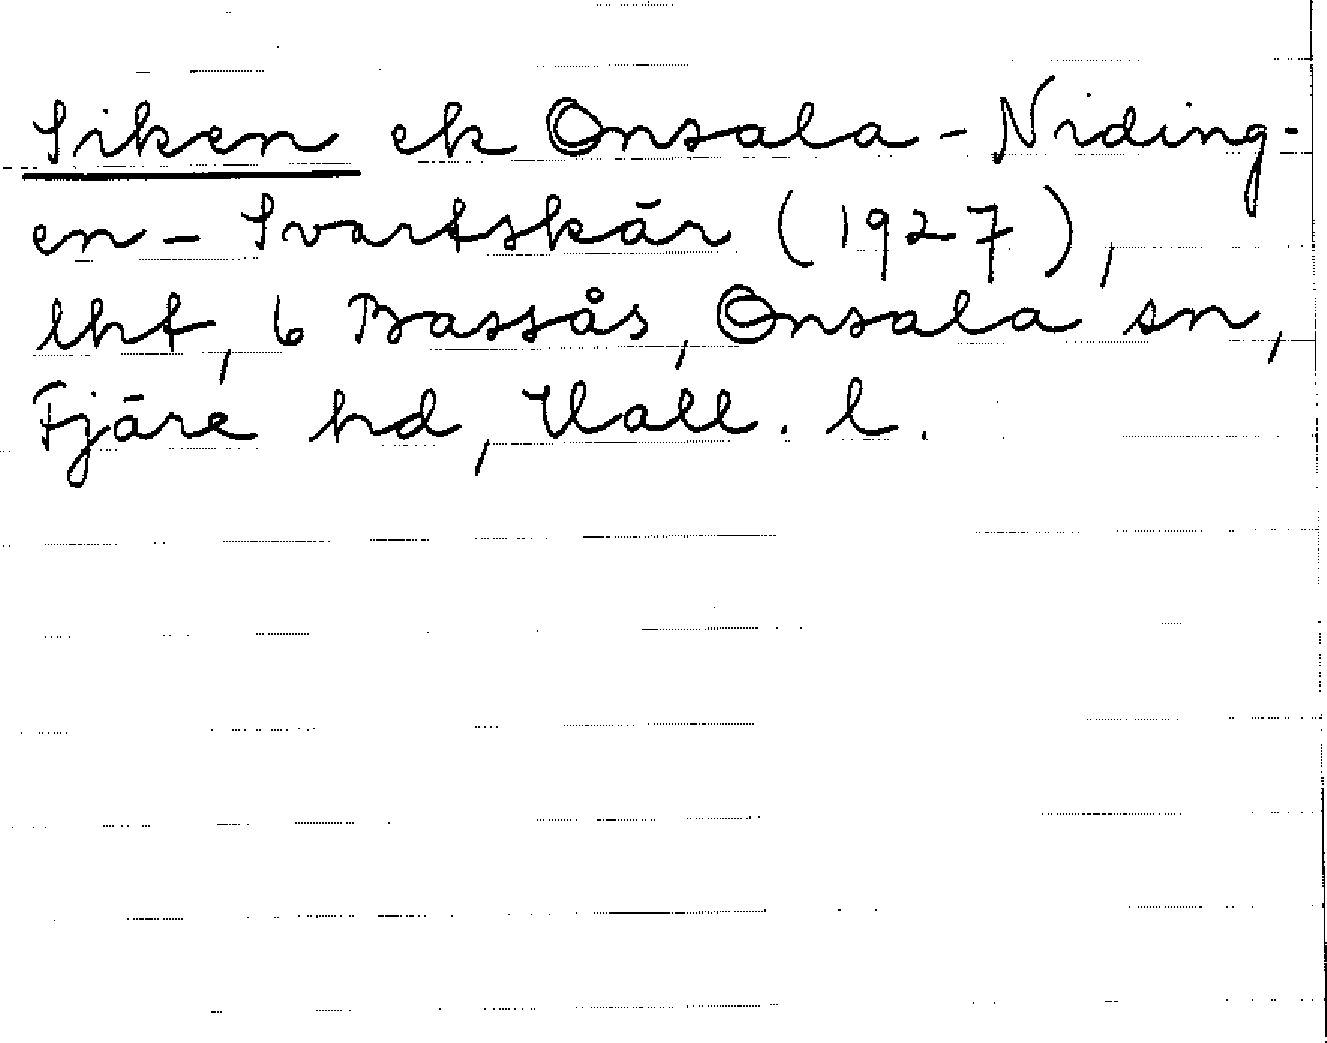 Siken ek Onsala - Niding-
en - Svartskär (1927),
lht, 6 Bassås, Onsala sn,
Fjäre hd, Hall. l.